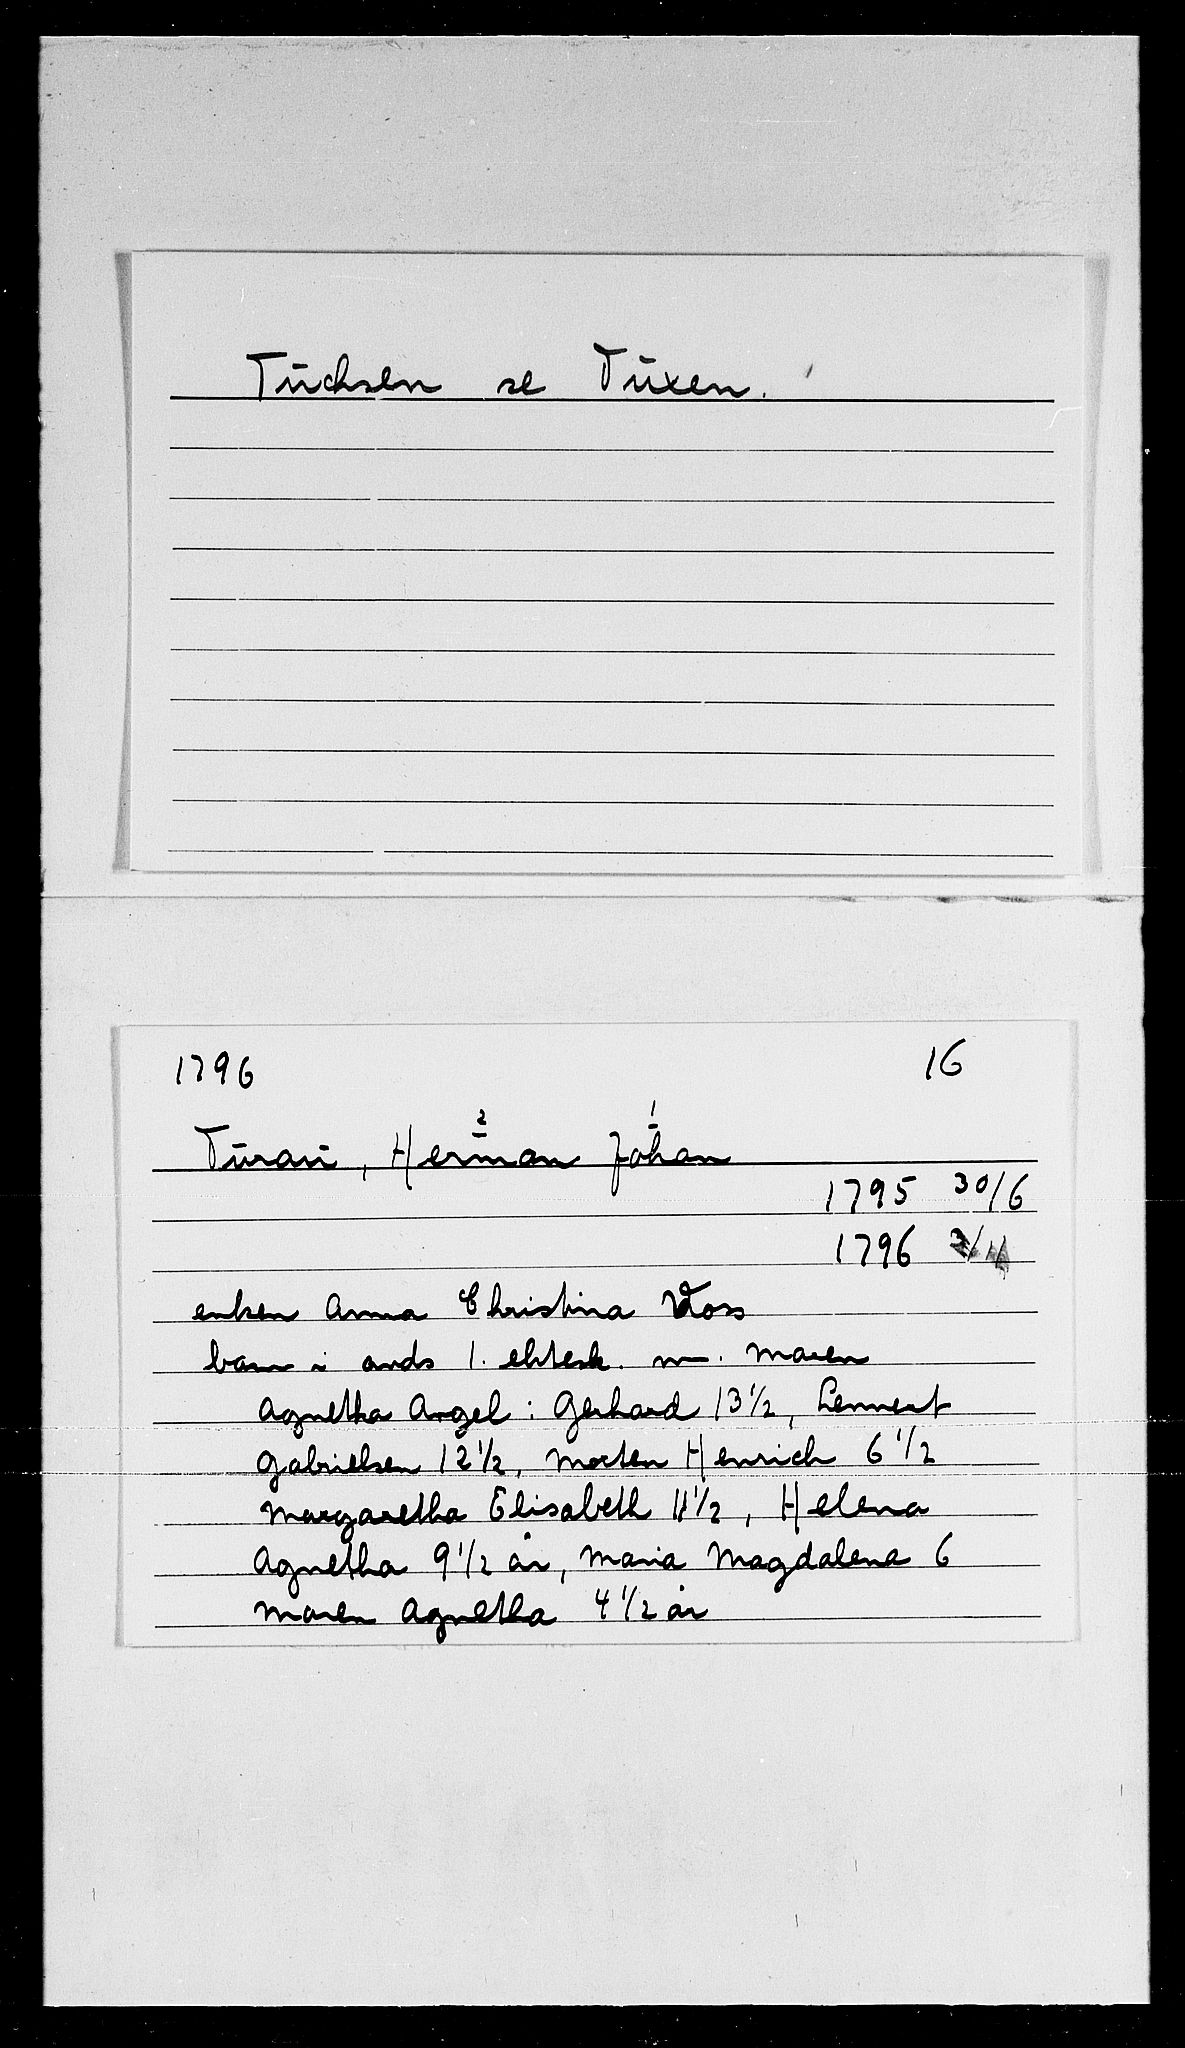 Tüchsen se Tüxen.
1796 16
2 1
Turau, Herman Johan
1795 30/6
1796
enken Anna Christina Voss
barn i avds 1. ektesk. m. Maren
Agnetha Angel: Gerhard 13 1/2, Lennert
Gabrielsen 12 1/2, Morten Henrich 6 1/2
Margaretha Elisabeth 11 1/2, Helena
Agnetha 9 1/2 år, Maria Magdalena 6
Maren Agnetha 4 1/2 år